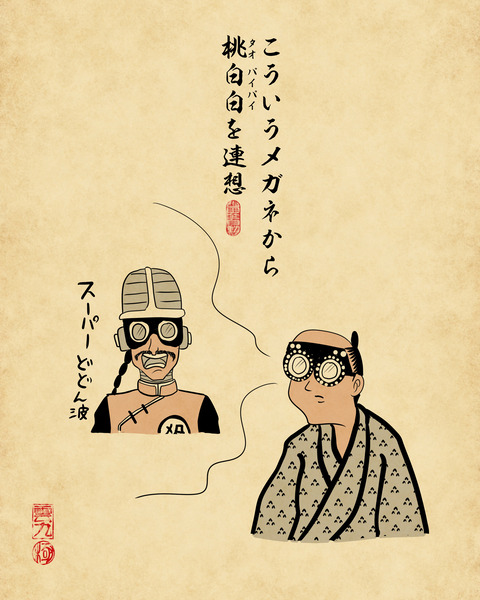 こういうメガネから
桃白白を連想
タオ パイパイ
スーパーどどん波
殺